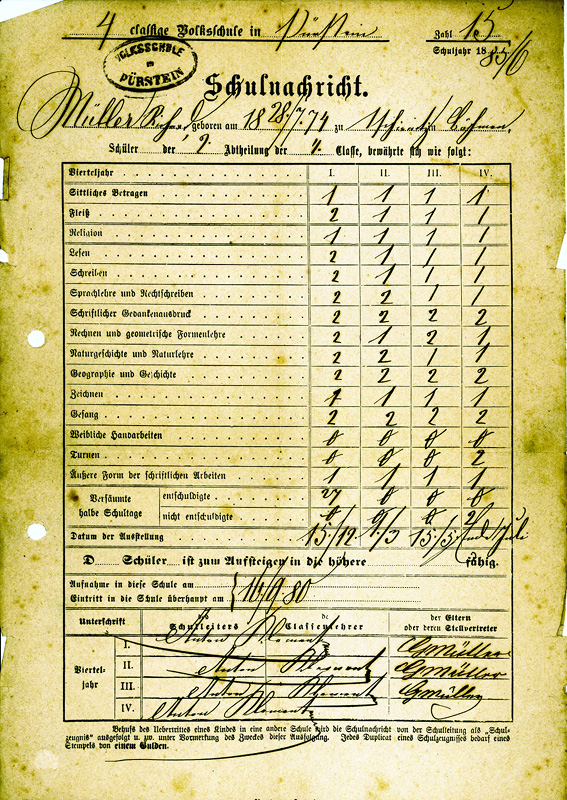 4 classige Volksschule in Pürstein Zahl 15
VOLKSSCHULE
in
PÜRSTEIN
Schuljahr 1885/6
Schulnachricht.
Müller geboren am 18 28./7. 74 zu in Böhmen,
Schüler der 2. Abtheilung der 4. Classe, bewährte sich wie folgt:
Vierteljahr I. II. III. IV.
Sittliches Betragen 1 1 1 1
Fleiß 2 1 1 1
Religion 1 1 1 1
Lesen 2 1 1 1
Schreiben 2 1 1 1
Sprachlehre und Rechtschreiben 2 2 1 1
Schriftlicher Gedankenausdruck 2 2 2 2
Rechnen und geometrische Formenlehre 2 1 2 1
Naturgeschichte und Naturlehre 2 2 1 1
Geographie und Geschichte 2 2 2 2
Zeichnen 1 1 1 1
Gesang 2 2 2 2
Weibliche Handarbeiten 0 0 0 0
Turnen 0 0 0 2
Äußere Form der schriftlichen Arbeiten 1 1 1 1
Versäumte halbe Schultage entschuldigte 27 0 0 0
nicht entschuldigte 0 0 0 2
Datum der Ausstellung 15/12 9/3 15/5 Ende Juli
D Schüler ist zum Aufsteigen in die höhere fähig.
Aufnahme in diese Schule am
Eintritt in die Schule überhaupt am 16/9. 80
Unterschrift des Schulleiters de Classenlehrer der Eltern oder deren Stellvertreter
Viertel-jahr
I. Anton Klement G Müller
II. Anton Klement G Müller
III. Anton Klement G Müller
IV. Anton Klement
Behufs des Uebertrittes eines Kindes in eine andere Schule wird die Schulnachricht von der Schulleitung als „Schul-
zeugnis" ausgefolgt u. zw. unter Vormerkung des Zweckes dieser Ausfolgung. Jedes Duplicat eines Schulzeugnisses bedarf eines
Stempels von einem Gulden.